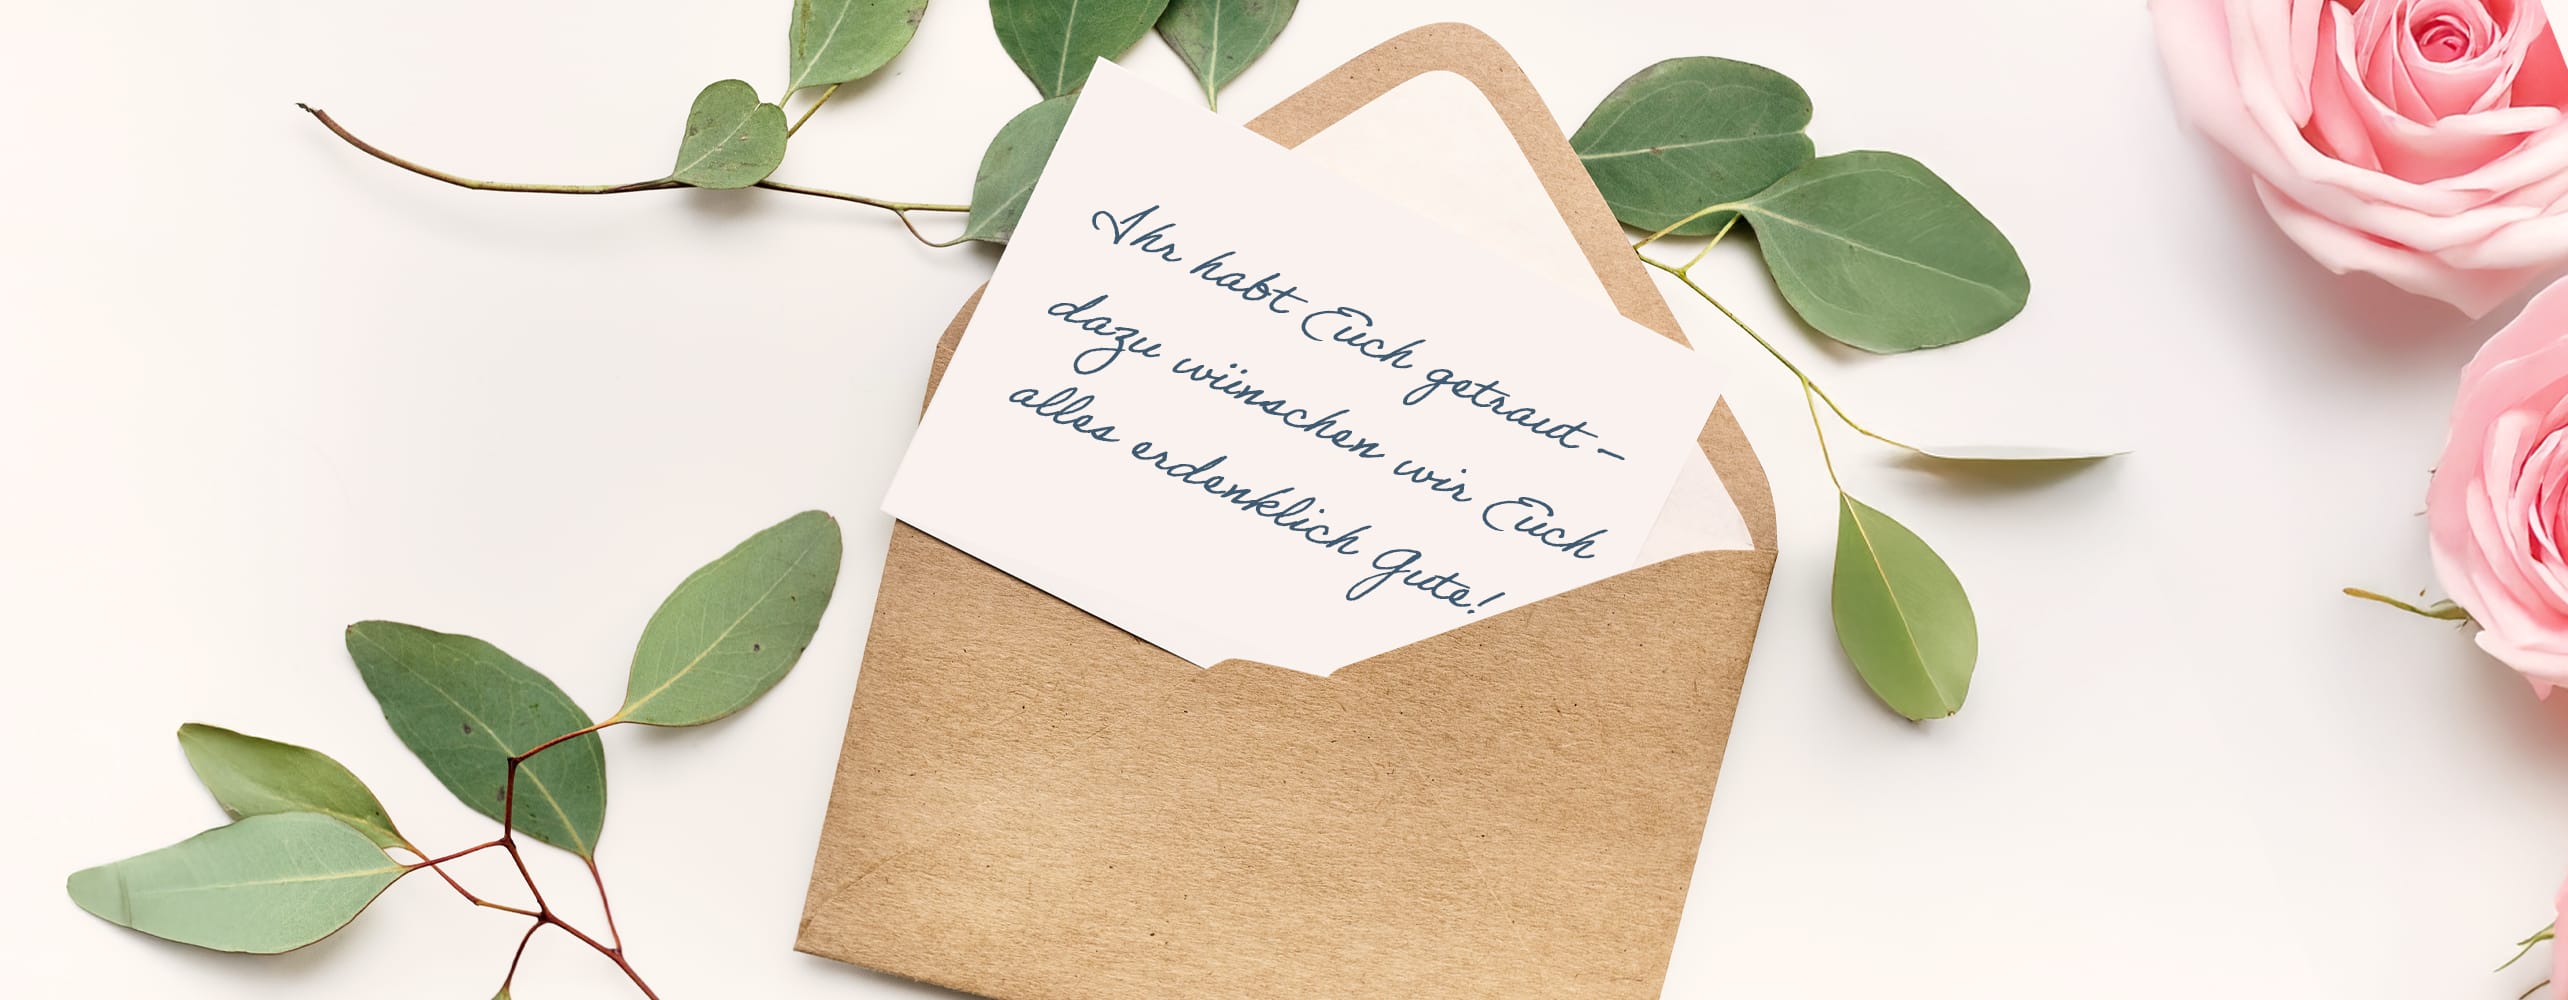 Ihr habt Euch getraut –
dazu wünschen wir Euch
alles erdenklich Gute!